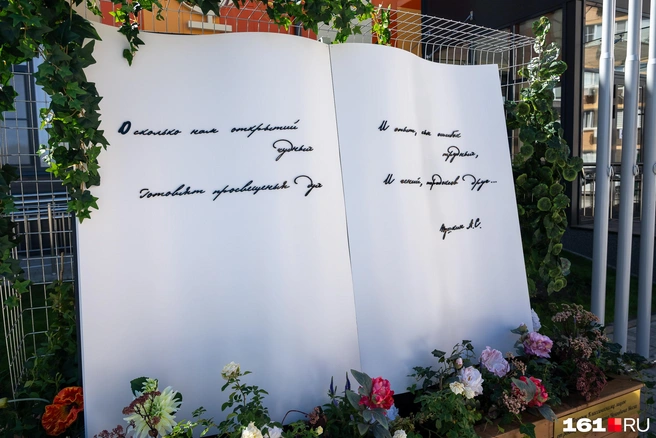 О сколько нам открытий
чудных
Готовят просвещенья Дух
И опыт, сын ошибок
трудных,
И гений, парадоксов Друг...
Пушкин А.С.
161 RU